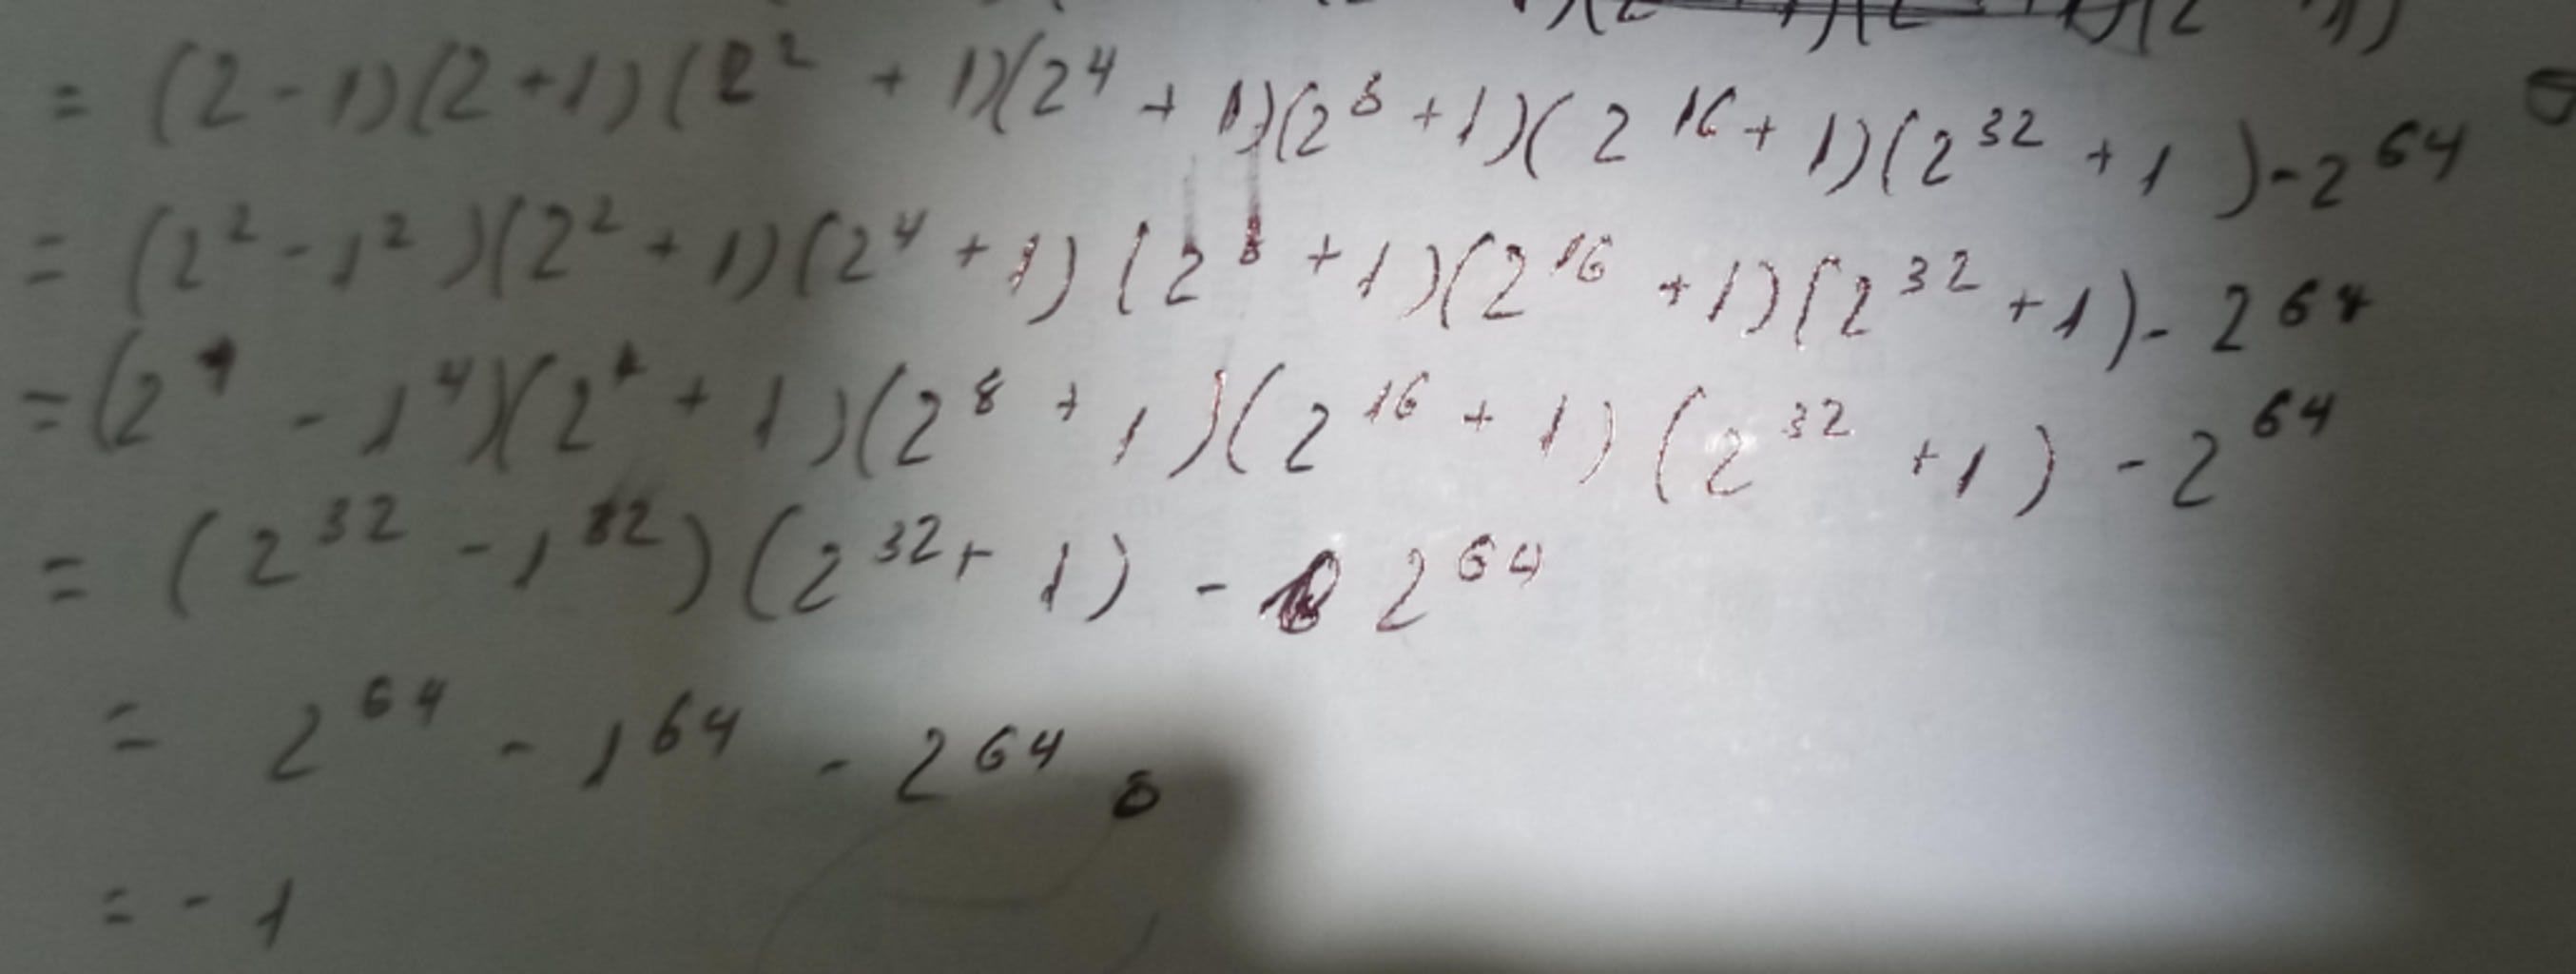 = (2-1)(2+1)(2² + 1)(2⁴ + 1)(2⁸ + 1)(2¹⁶ + 1)(2³² + 1) - 2⁶⁴
= (2² - 1²)(2² + 1)(2⁴ + 1)(2⁸ + 1)(2¹⁶ + 1)(2³² + 1) - 2⁶⁴
= (2⁴ - 1⁴)(2⁴ + 1)(2⁸ + 1)(2¹⁶ + 1)(2³² + 1) - 2⁶⁴
= (2³² - 1³²)(2³² + 1) - 2⁶⁴
= 2⁶⁴ - 1⁶⁴ - 2⁶⁴
= - 1